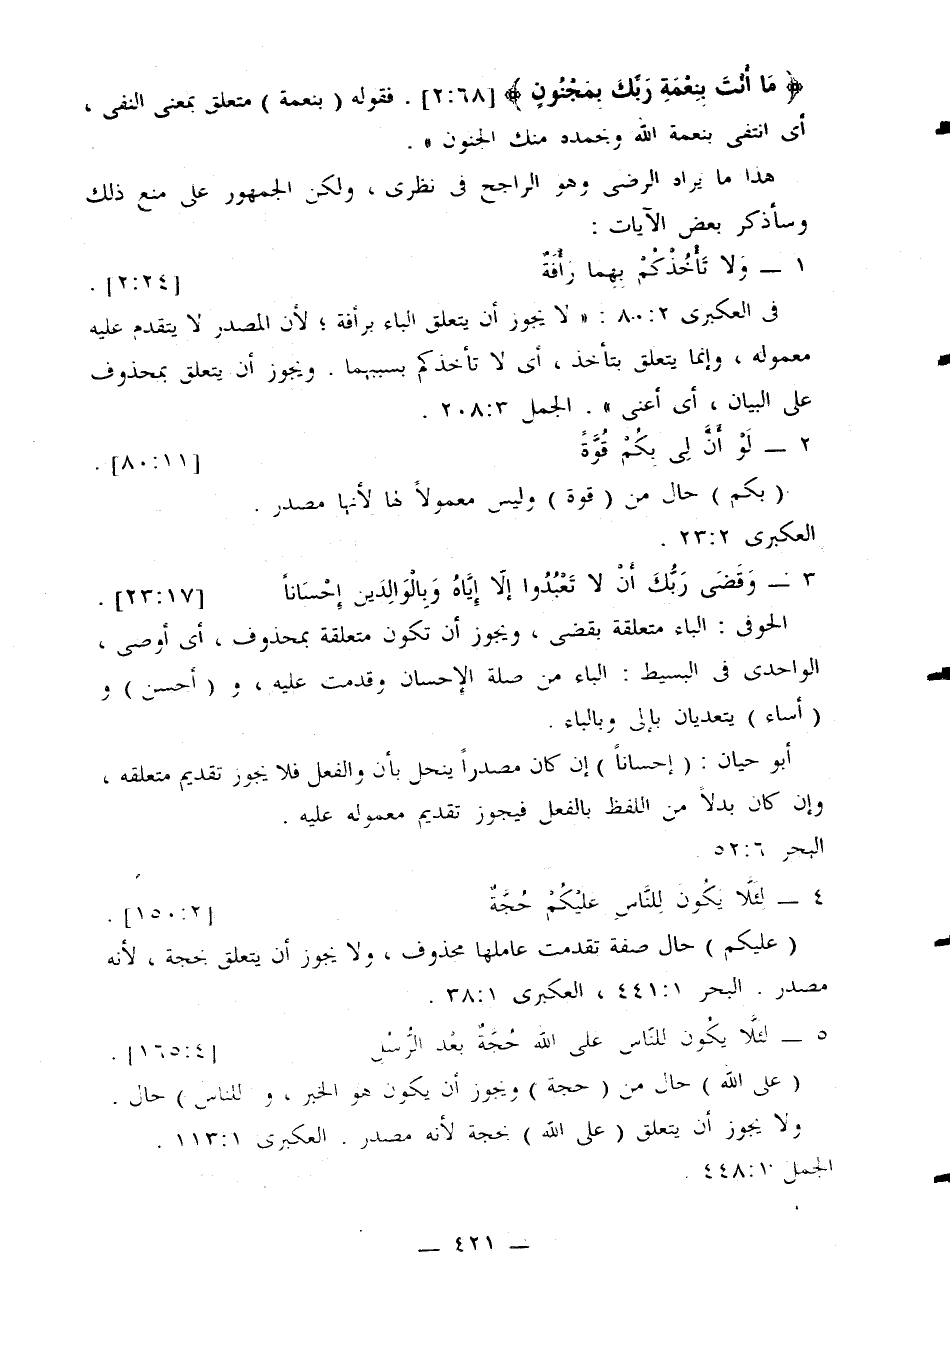 ﴿ مَا أَنْتَ بِنِعْمَةِ رَبِّكَ بِمَجْنُونٍ ﴾ [٢:٦٨] . فقوله ( بنعمة ) متعلق بمعنى النفى ،
أى انتفى بنعمة الله وبحمده منك الجنون » .
هذا ما يراد الرضى وهو الراجح فى نظرى ، ولكن الجمهور على منع ذلك
وسأذكر بعض الآيات :
١ ــ وَلا تَأْخُذْكُمْ بِهِما رَأْفَةٌ [٢:٢٤] .
فى العكبرى ٨٠:٢ : « لا يجوز أن يتعلق الباء برأفة ؛ لأن المصدر لا يتقدم عليه
معموله ، وإنما يتعلق بتأخذ ، أى لا تأخذكم بسببهما . ويجوز أن يتعلق بمحذوف
على البيان ، أى أعنى » . الجمل ٢٠٨:٣ .
٢ ــ لَوْ أَنَّ لِى بِكُمْ قُوَّةً [٨٠:١١] .
( بكم ) حال من ( قوة ) وليس معمولاً لها لأنها مصدر .
العكبرى ٢٣:٢ .
٣ ــ وَقَضَى رَبُّكَ أَنْ لا تَعْبُدُوا إلَّا إِيَّاهُ وَبِالْوَالِدَينِ إِحْسَاناً [٢٣:١٧] .
الحوفى : الباء متعلقة بقضى ، ويجوز أن تكون متعلقة بمحذوف ، أى أوصى ،
الواحدى فى البسيط : الباء من صلة الإحسان وقدمت عليه ، و ( أحسن ) و
( أساء ) يتعديان بإلى وبالباء .
أبو حيان : ( إحساناً ) إن كان مصدراً ينحل بأن والفعل فلا يجوز تقديم متعلقه ،
وإن كان بدلاً من اللفظ بالفعل فيجوز تقديم معموله عليه .
البحر ٥٢:٦
٤ ــ لِئَلَّا يَكُونَ لِلنَّاسِ عَلَيْكُمْ حُجَّةٌ [١٥٠:٢] .
( عليكم ) حال صفة تقدمت عاملها محذوف ، ولا يجوز أن يتعلق بحجة ، لأنه
مصدر . البحر ٤٤١:١ ، العكبرى ٣٨:١ .
٥ ــ لئلَّا يكُون للنَّاس على الله حُجَّةٌ بعْد الرُّسُلِ [١٦٥:٤] .
( على الله ) حال من ( حجة ) ويجوز أن يكون هو الخبر ، و للناس ) حال .
ولا يجوز أن يتعلق ( على الله ) بحجة لأنه مصدر . العكبرى ١١٣:١ .
الجمل ٤٤٨:١٠ .
ــ ٤٢١ ــ